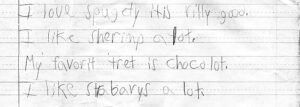 I love spugedy itis rilly gooo.
I like sherimp a lot.
My favorit tret is choco lot.
I like strbarys a lot